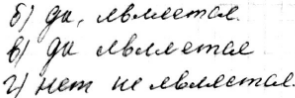 б) да, является.
в) да является
г) нет не является.